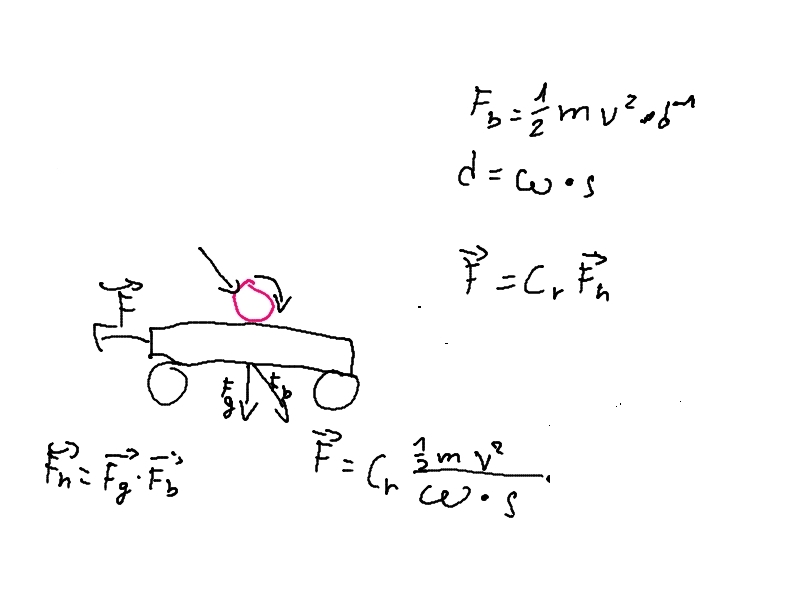 F_b = 1/2 m v² • d⁻¹
d = ω • s
F⃗ = C_r F⃗_n
F⃗
F_g F_b
F⃗_n = F⃗_g · F⃗_b
F⃗ = C_r (1/2 m v²)/(ω • s) •